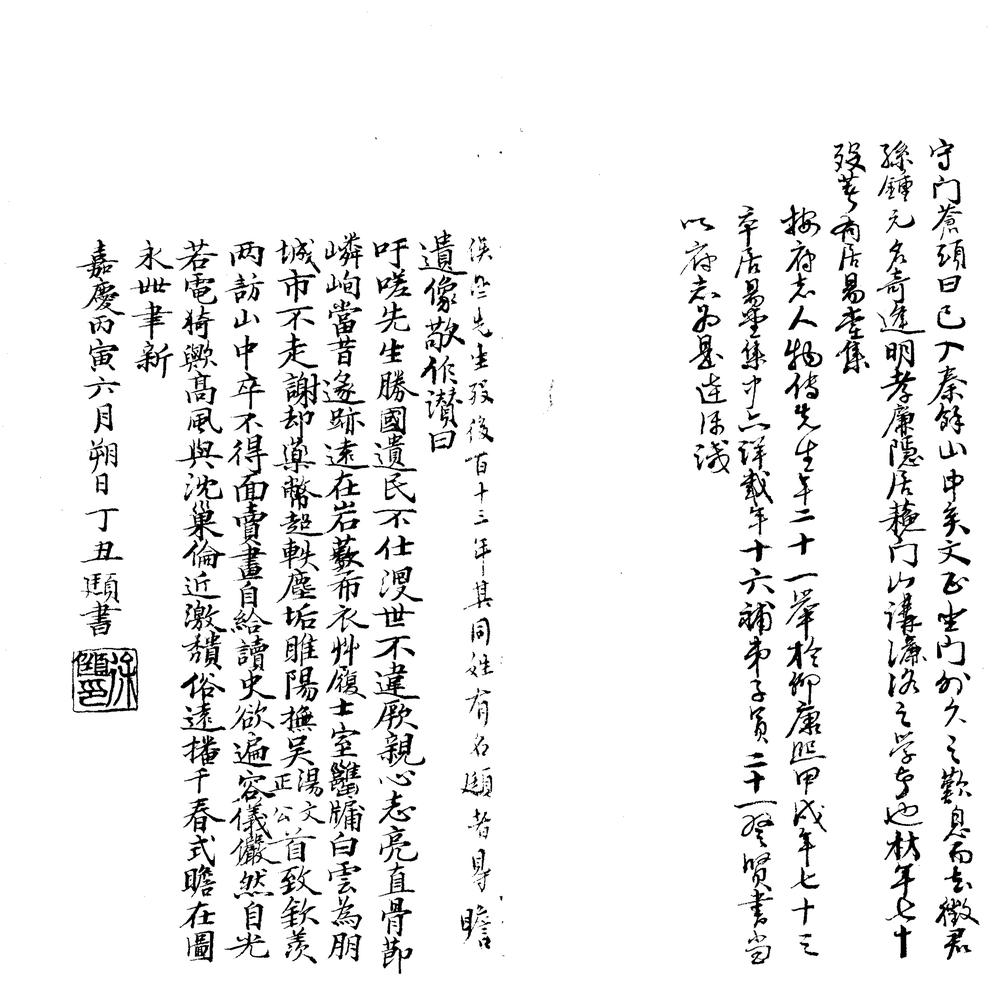 守门蒼頭曰已入秦餘山中矣文正坐門外久之歎息而去徵君
孫鍾元名奇逢明孝廉隱居蘓门山講濂洛之学者也枋年七十
殁著有居易堂集
按府志人物傳先生年二十一舉於鄉康熙甲戌年七十三
卒居易堂集中亦詳載年十六補弟子員二十一登賢書當
以府志為是 識
俟齋先生殁後百十三年其同姓有名頲者得瞻
遺像敬作讃曰
吁嗟先生勝國遺民不仕謾世不違厥親心志亮直骨節
嶙峋當昔遂跡遠在岩藪布衣艸履土室雝牖白雲為朋
城市不走謝却藥幣超軼塵垢睢陽撫吴湯文正公首致欽羨
两訪山中卒不得面賣畫自給讀史欲遍容儀儼然自光
若電猗歟高風與沈巢倫近激穨俗遠播千春式瞻在圖
永丗聿新
嘉慶丙寅六月朔日丁丑頲書
徐頲印